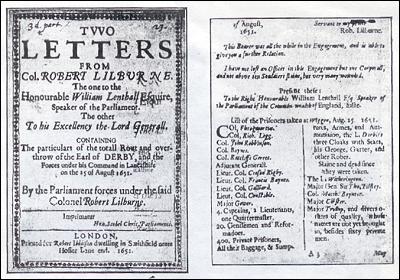 3d. part.
TVVO
LETTERS
FROM
Col. ROBERT LILBURNE.
The one to the
Honourable William Lenthall Esquire,
Speaker of the Parliament.
The other
To his Excellency the Lord Generall.
CONTAINING
The particulars of the totall Rout and over-
throw of the Earl of DERBY, and the
Forces under his Command in Lancashire
on the 25 of August 1651.
By the Parliament forces under the said
Colonel Robert Lilburne.
Imprimatur
Hen. Scobel Cleric. Parliamenti.
LONDON,
Printed for Robert Ibbitson dwelling in Smithfield neere
Hosier Lane end. 1651.
of August,
1651.
Servant to
Rob. Lilburne.
This Bearer was all the while in the Engagement, and is able to
give you a further Relation.
I have not lost an Officer in this Engagement but one Corporall,
and not above ten Souldiers slaine, but very many wounded.
Present these:
To the Right Honourable William Lenthall Esq; Speaker
of the Parliament of the Common-wealth of England, these.
List of the Prisoners taken at Wiggon, Aug. 25. 1651.
Col. Throgmorton.
Col. Rich. Leg.
Col. John Robinson.
Col. Baynes.
Col. Ratcliffe Gerret.
Adjutant Generall.
Lieut. Col. Rigby.
Lieut. Col. Francis Baynes.
Lieut. Col. Galliard.
Lieut. Col. Constable.
Major Gower.
4. Captains, 2 Lieutenants,
one Quartermaster.
20. Gentlemen and Refor-
madoes.
400. Private Prisoners,
All their Baggage, & Sump-
ters, Armes, and Am-
munition, the L. Derbies
three Cloaks with Stars,
his George, Garter, and
other Robes.
Slaine and dyed since
they were taken.
The L. Witherington.
Major Gen. Sir Tho. Tilsley.
Col. Mathi. Baynton.
Major Chester.
Major Trollop, and divers o-
thers of quality, whose
names are not yet brought
in, besides sixty private
men.